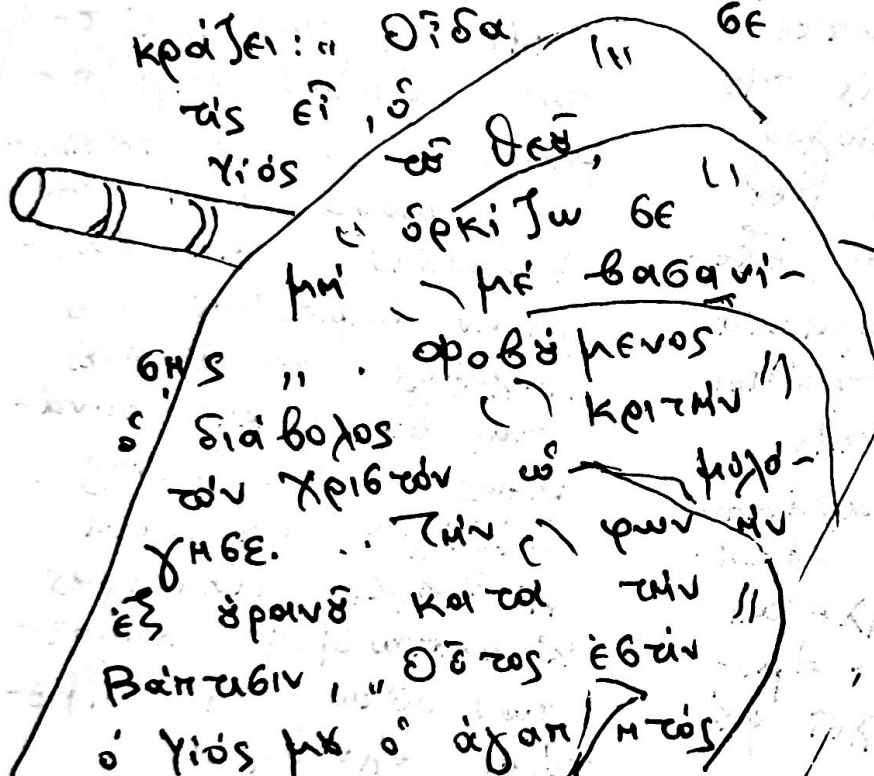 κράζει: „ Οἶδα σε
τίς εἶ, ὁ
Υἱός τȣ͂ Θεȣ͂,
ὁρκίζω σε
μή μέ βασανί-
σῃς „. Φοβȣ́μενος
ὁ διάβολος κριτήν
τόν Χριστόν ὡ- μολό-
γησε. Τήν φωνήν
ἐξ ȣ̓ρανȣ͂ κατά τήν
Βάπτισιν, „ Οὗτος ἐστίν
ὁ Υἱός μȣ ὁ ἀγαπητός